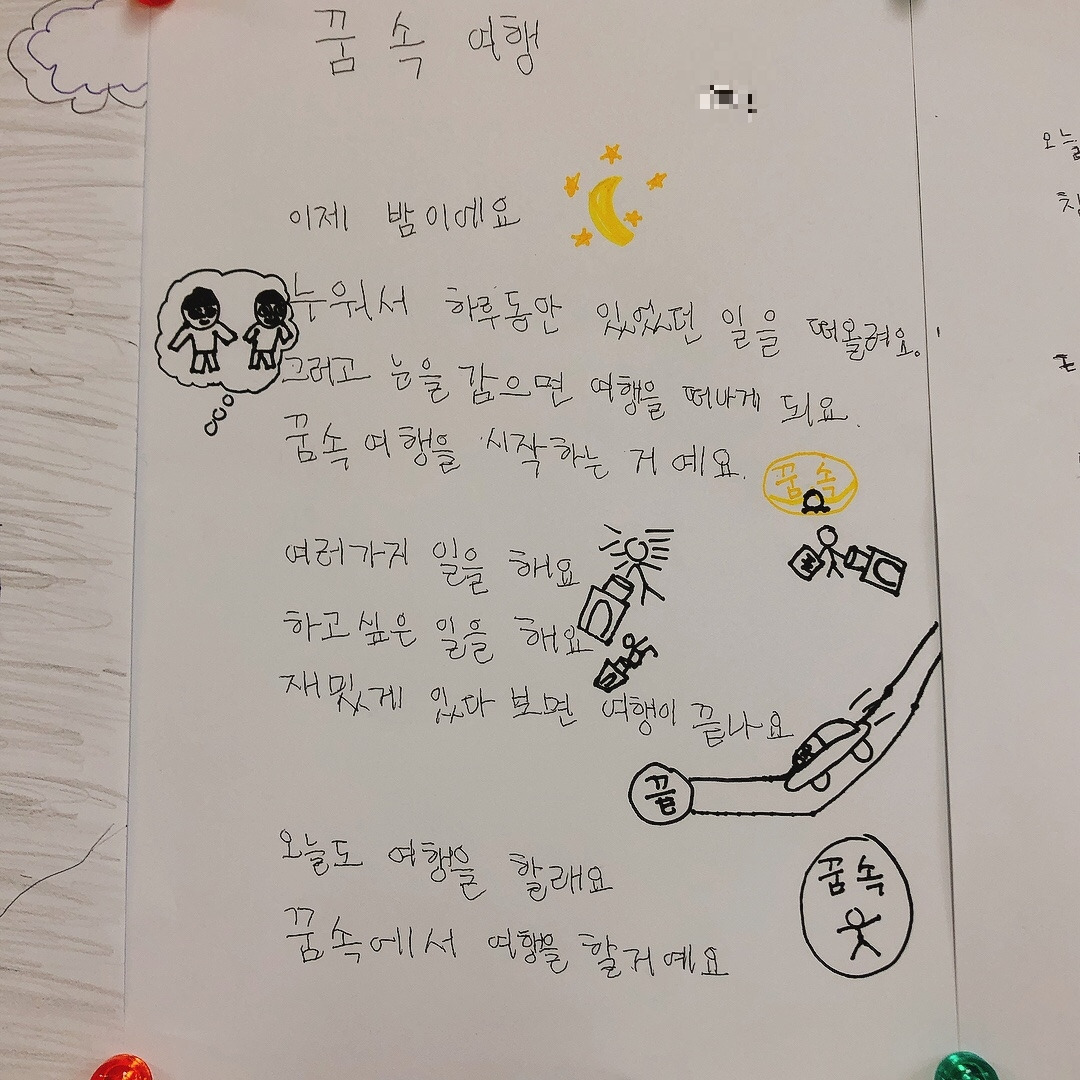 꿈 속 여행
이제 밤이에요
누워서 하루동안 있었던 일을 떠올려요.
그러고 눈을 감으면 여행을 떠나게 되요.
꿈속 여행을 시작하는 거예요.
꿈 속
여러가지 일을 해요
하고싶은 일을 해요
재밌게 있다 보면 여행이 끝나요
끝
오늘도 여행을 할래요
꿈 속
꿈속에서 여행을 할거예요
오늘